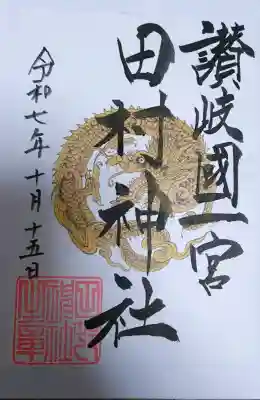 讃岐國一宮
田村神社
令和七年十月十五日